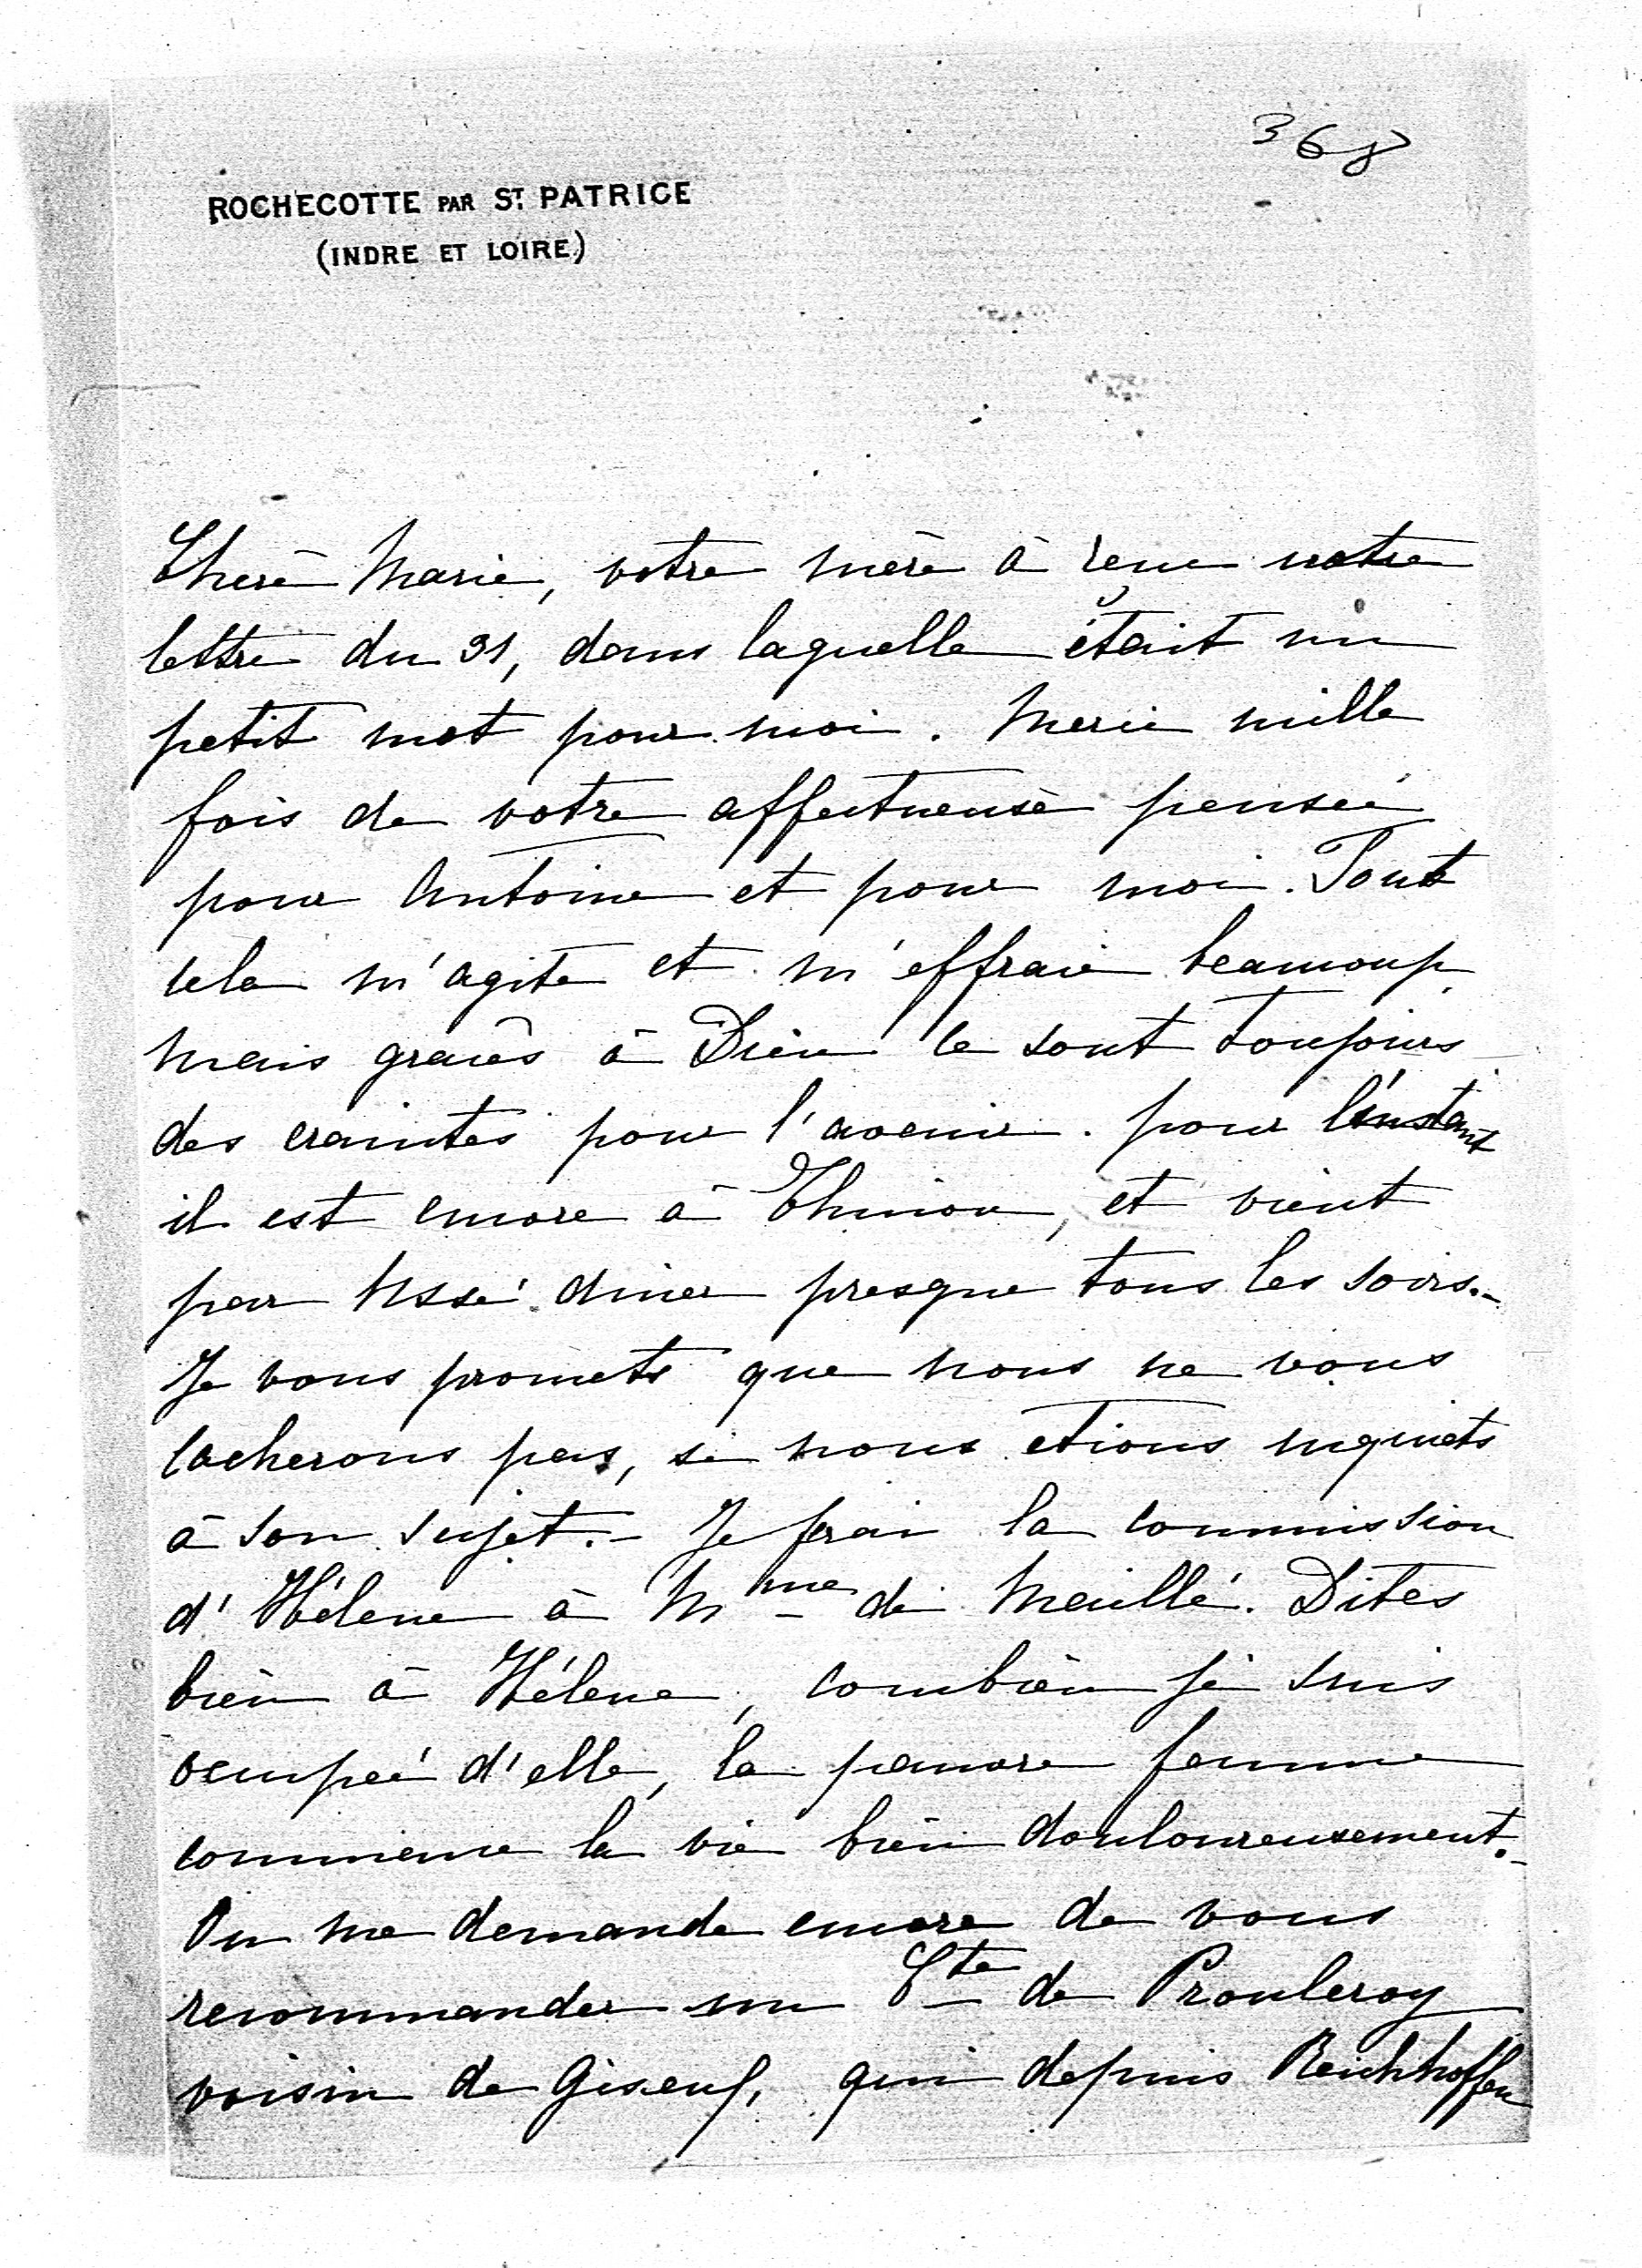 368
ROCHECOTTE PAR ST. PATRICE
(INDRE ET LOIRE)
Chère Marie, votre mère à reçu votre
lettre du 31, dans laquelle était un
petit mot pour moi. Merci mille
fois de votre affectueuse pensée
pour Antoine et pour moi. Tout
cela m'agite et m'effraie beaucoup
mais graces à Dieu ce sont toujours
des craintes pour l'avenir. pour l'instant
il est encore à Chinon, et vient
par Ussé diner presque tous les soirs.-
Je vous promets que nous ne vous
cacherons pas, si nous etions inquiets
à son sujet.- Je ferai la commission
d'Hélène à Mme de Maillé. Dites
bien à Hélène, combien je suis
occupée d'elle, la pauvre femme
commence la vie bien douloureusement.-
On me demande encore de vous
recommander un Cte de Prouleroy
voisin de Gizeux, qui depuis Reichhoffen